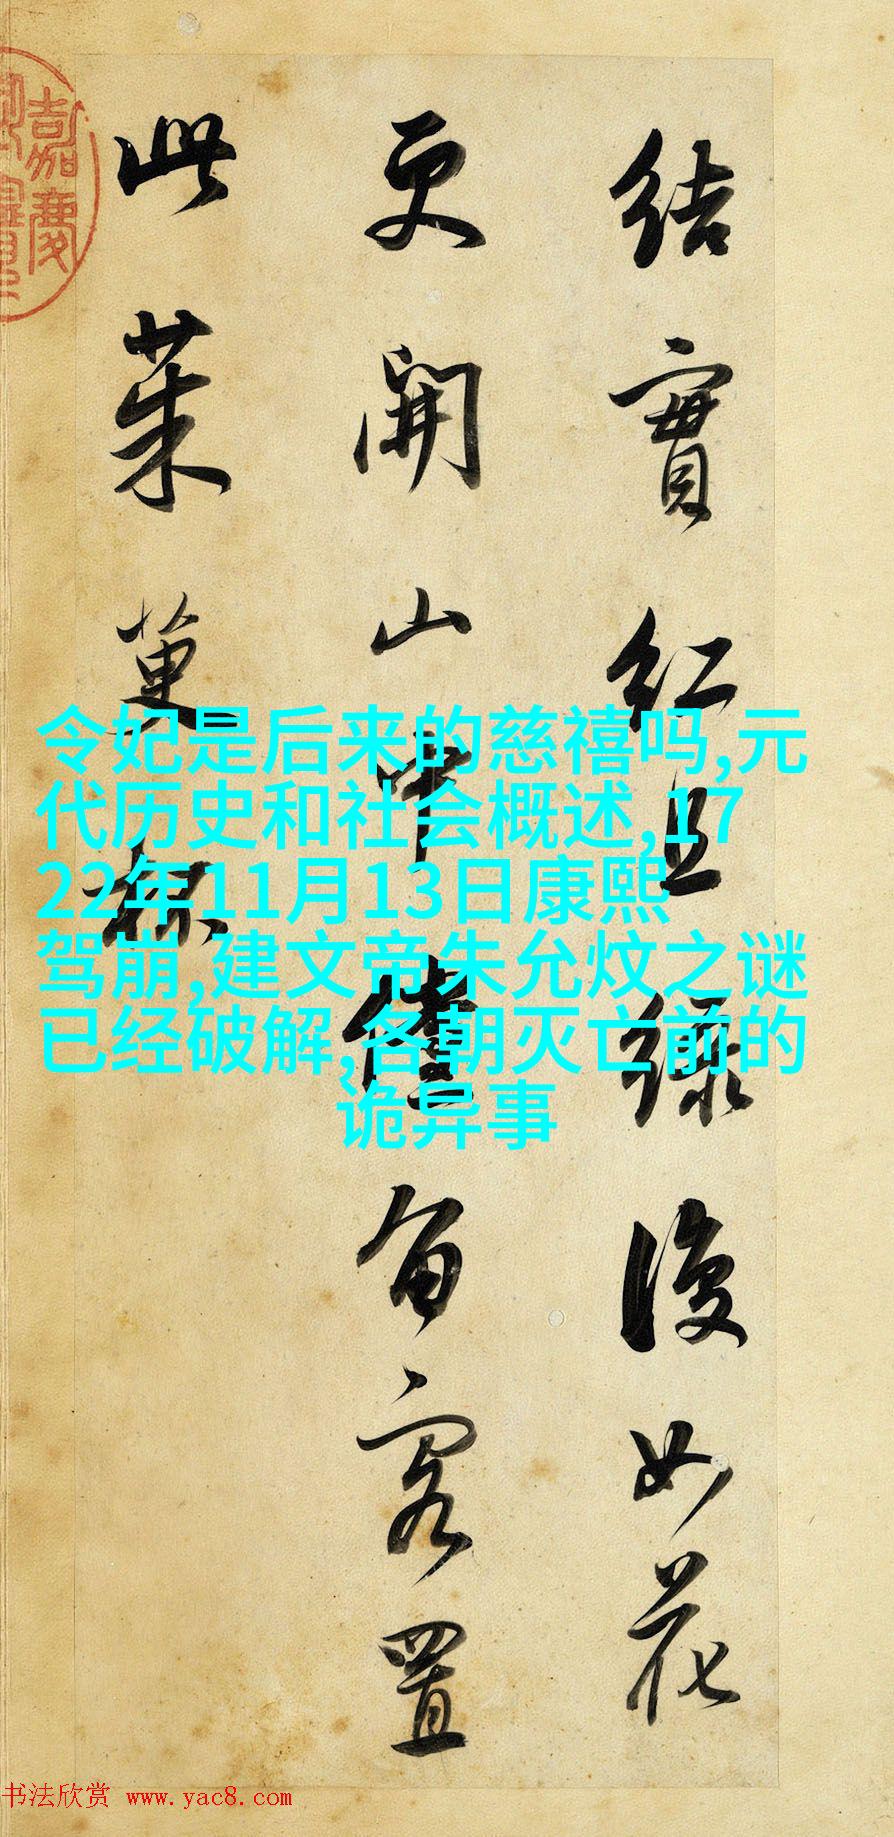 結實紅且綠復如花
更開山中儻留客置
此茱萸杯
嘉慶
令妃是后来的慈禧吗,元
代历史和社会概述,17
22年11月13日康熙
驾崩,建文帝朱允炆之谜
已经破解,各朝灭亡前的
诡异事
书法欣赏 www.yac8.com